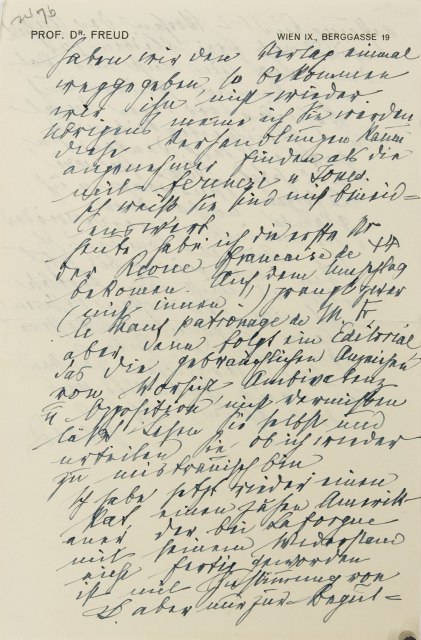 PROF. DR. FREUD WIEN IX., BERGGASSE 19
haben wir den Verlag einmal
weggegeben, so bekommen
wir ihn nicht wieder.
Übrigens meine ich Sie werden
diese Verhandlungen kaum
angenehmer finden als die
mit Ferenczi u Jones.
Ich weiß Sie sind nicht beneid=
enswert
Heute habe ich die erste Nr
der Revue française de ΨΑ
bekommen. Auf dem Umschlag
(nicht innen) prangt zwar
le haut patronage de M. Fr
aber dann folgt ein Editorial
das die gebräuchlichen Anzeichen
von Vorsicht, Ambivalenz
u Opposition nicht vermissen
läßt. Lesen Sie selbst und
urteilen Sie, ob ich wieder
zu mistrauisch bin
Ich habe jetzt wieder einen
Pat, einen zähen Amerik=
aner, der bei Laforgue
mit seinem Widerstand
nicht fertig geworden
ist mit Zustimmung von
L. aber nur zur